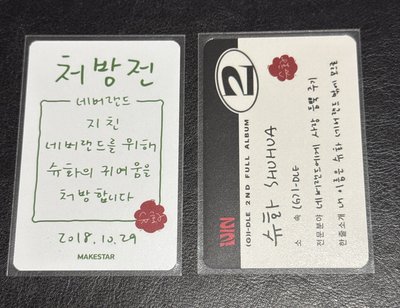 처방전
네버랜드
지친
네버랜드를 위해
슈화의 귀여움을
처방합니다
슈화
2018.10.29
MAKESTAR
2
(G)I-DLE 2ND FULL ALBUM
슈화 SHUHUA
소 속 (G)I-DLE
전문분야 네버랜드에게 사랑 듬뿍 주기
한줄소개 내 이름은 슈화 네버랜드 밖에 모르